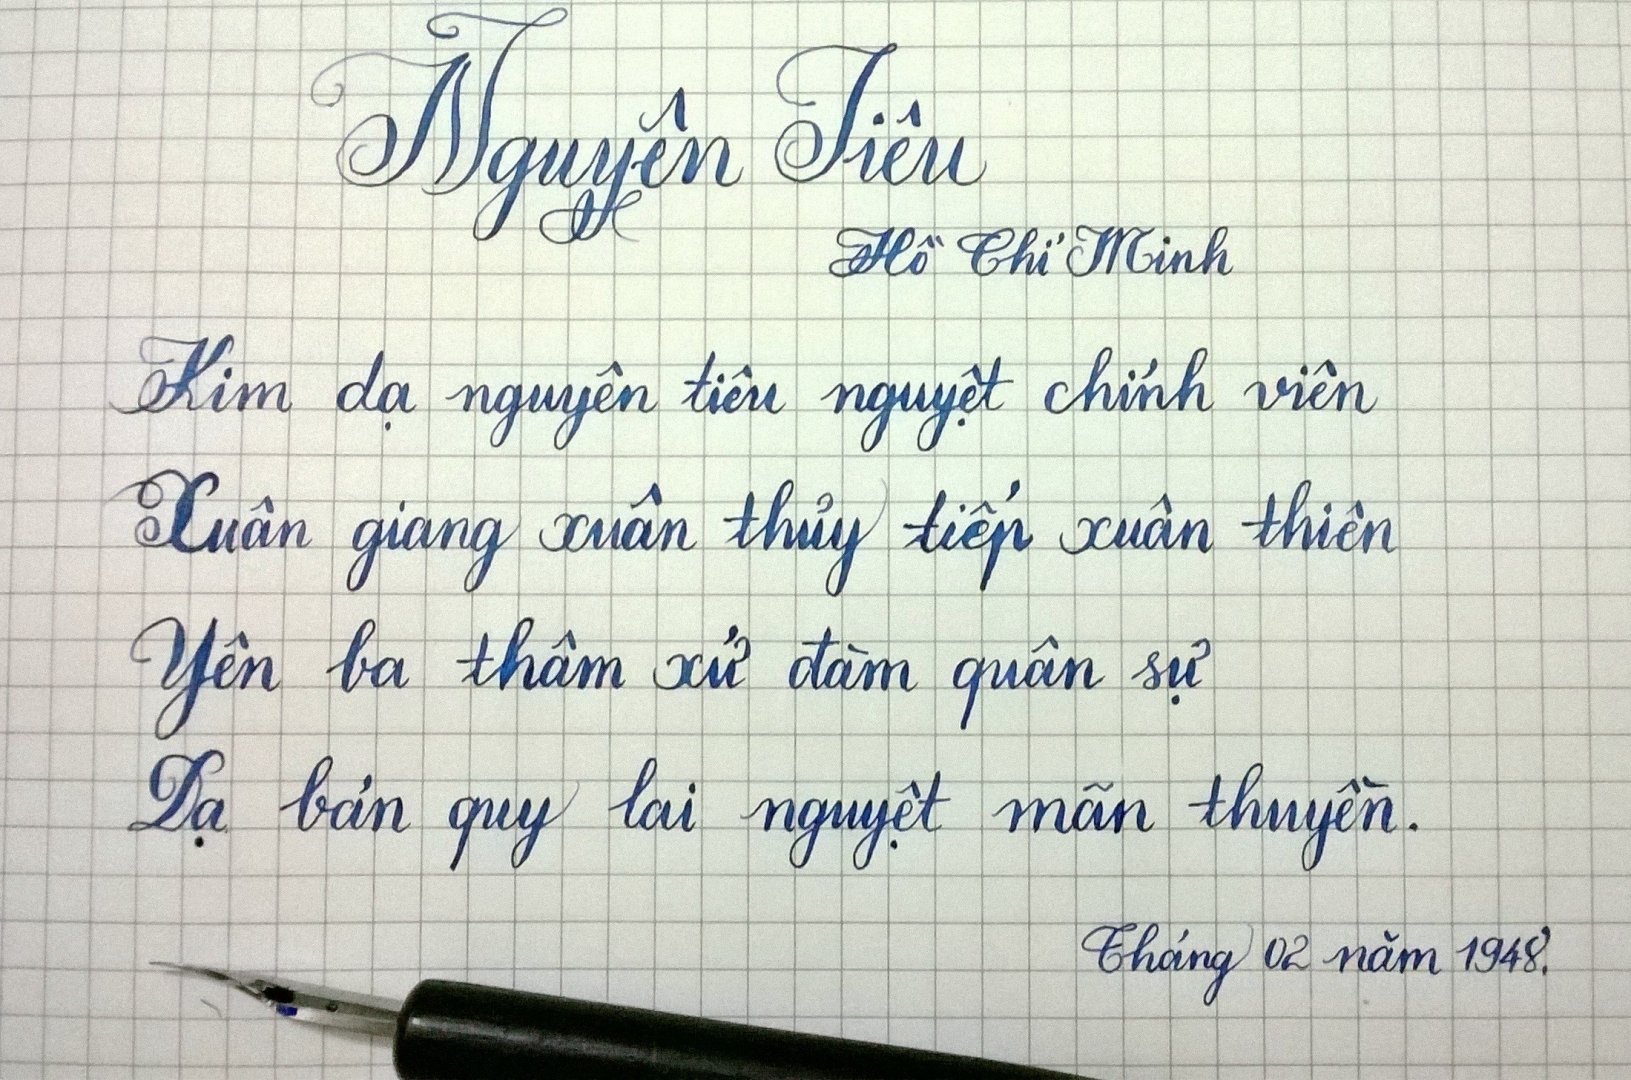 Nguyên Tiêu
Hồ Chí Minh
Kim dạ nguyên tiêu nguyệt chính viên
Xuân giang xuân thủy tiếp xuân thiên
Yên ba thâm xứ đàm quân sự
Dạ bán quy lai nguyệt mãn thuyền.
Tháng 02 năm 1948.